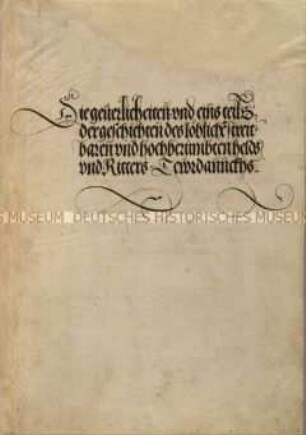 Die geuerlicheiten vnd eins teils
der geschichten des loblichen streit-
baren vnd hochberümbten helds
vnd Ritters Tewrdannckhs.
MUSEUM DEUTSCHES HISTORISCHES MUSEUM